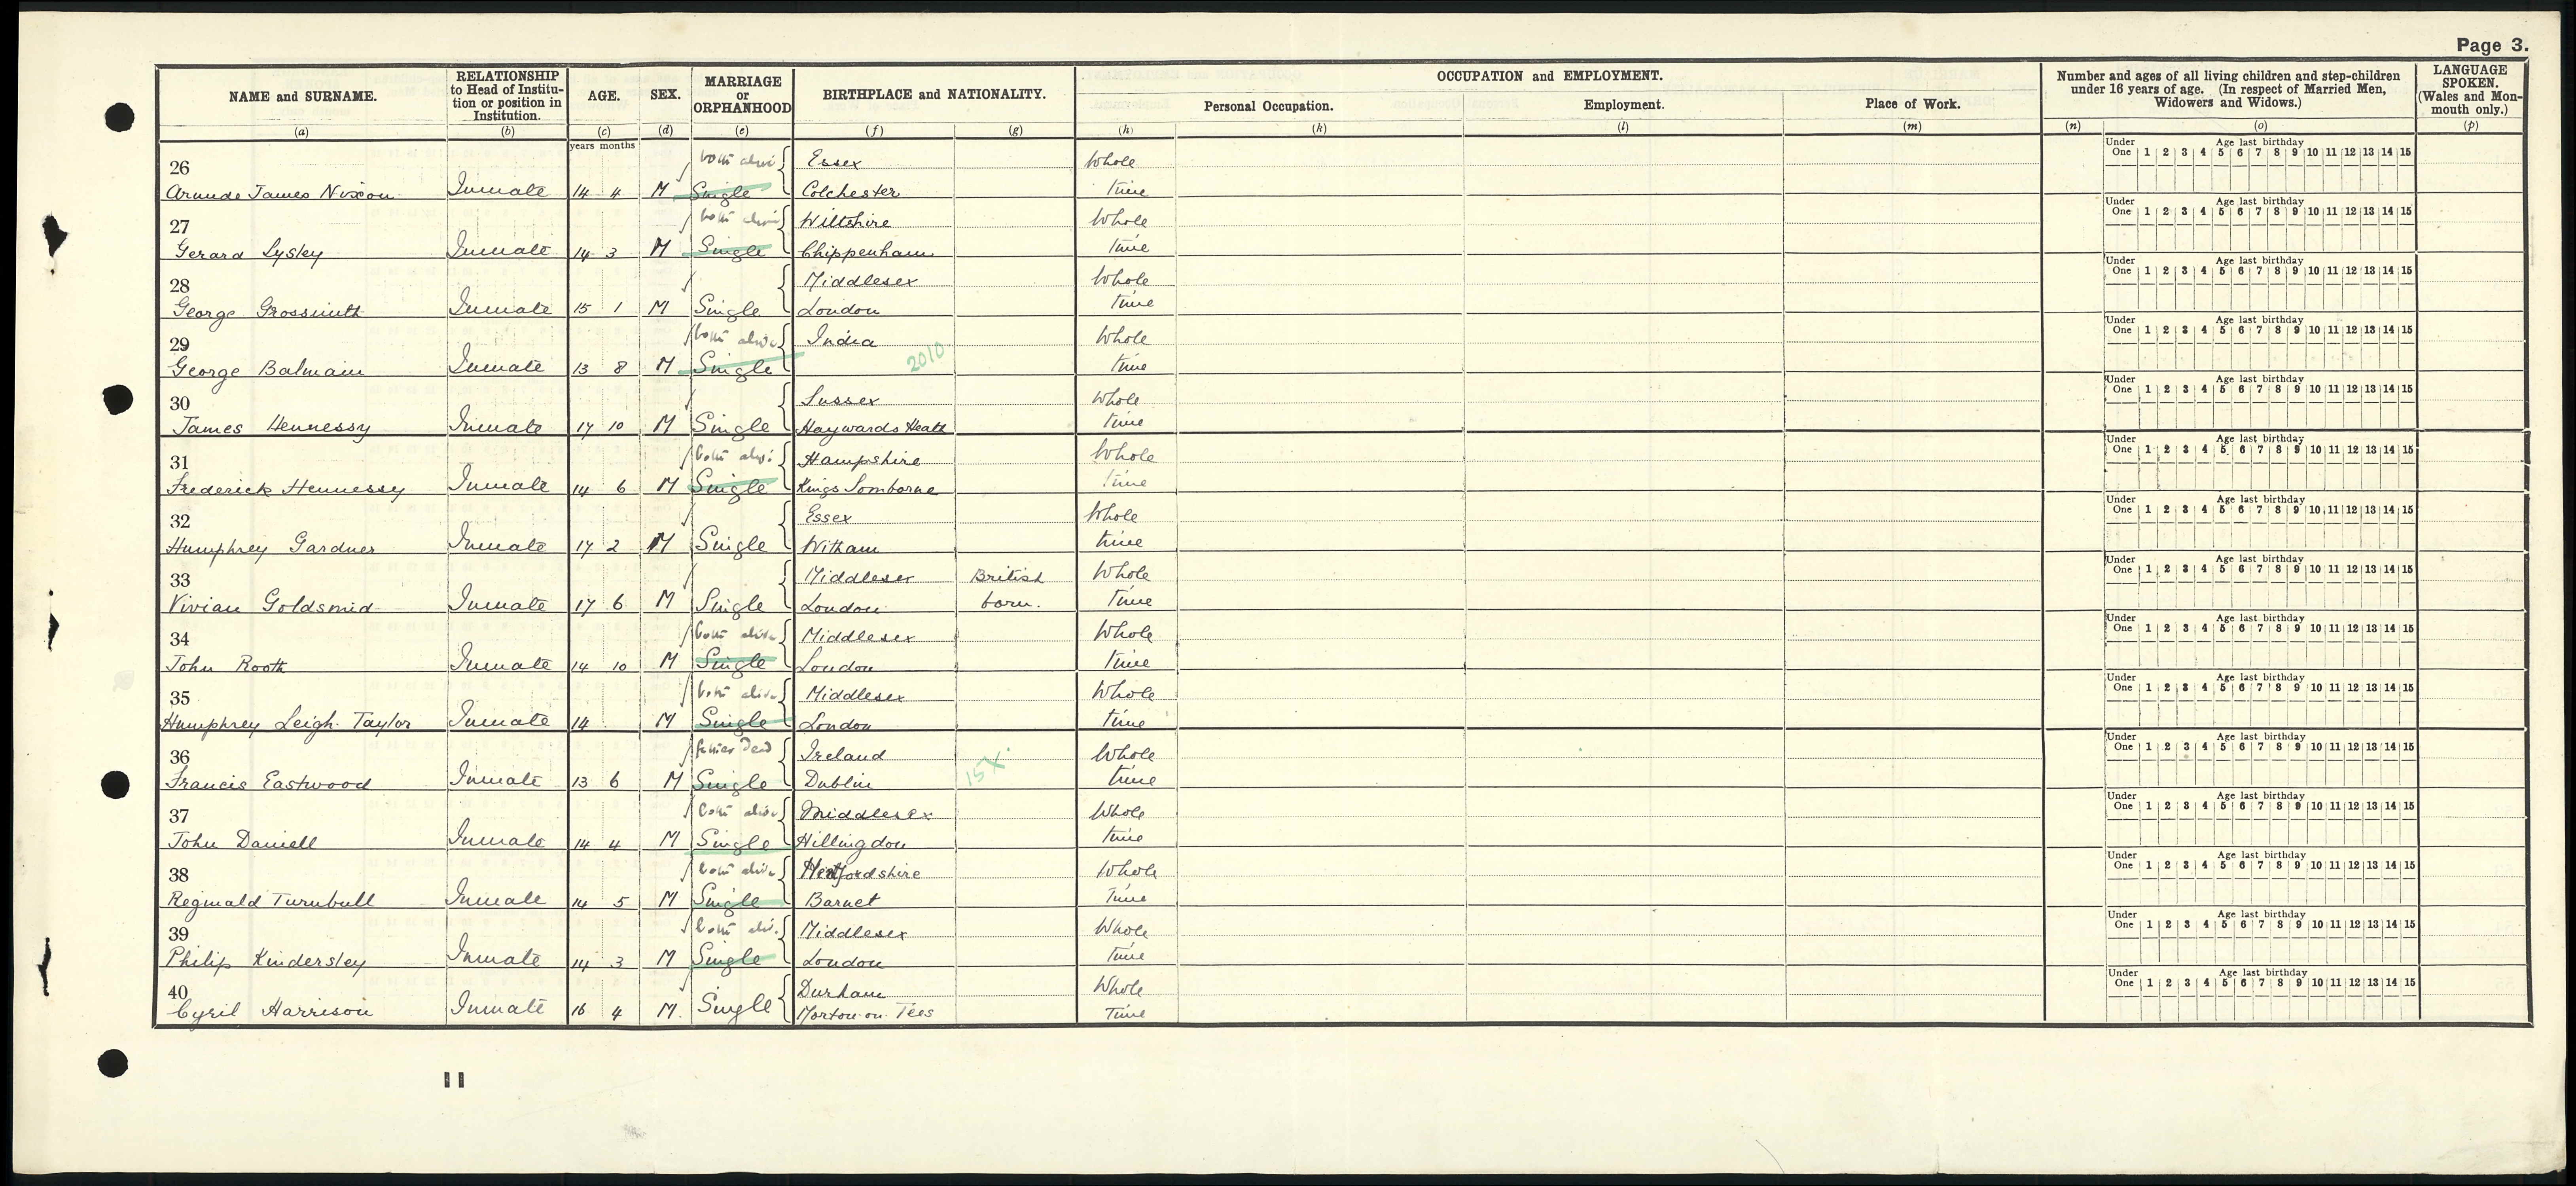 Page 3.
NAME and SURNAME.
RELATIONSHIP to Head of Institu-tion or position in Institution.
AGE.
SEX.
MARRIAGE or ORPHANHOOD
BIRTHPLACE and NATIONALITY.
OCCUPATION and EMPLOYMENT.
Personal Occupation.
Employment.
Place of Work.
Number and ages of all living children and step-children under 16 years of age. (In respect of Married Men, Widowers and Widows.)
LANGUAGE SPOKEN. (Wales and Mon-mouth only.)
(a) (b) (c) (d) (e) (f) (g) (h) (k) (l) (m) (n) (o) (p)
years months
26 both alive Essex Whole Under One Age last birthday 1 2 3 4 5 6 7 8 9 10 11 12 13 14 15
James Nixon Inmate 14 4 M Single Colchester time
27 both alive Wiltshire Whole Under One Age last birthday 1 2 3 4 5 6 7 8 9 10 11 12 13 14 15
Gerard Lysley Inmate 14 3 M Single Chippenham time
28 Middlesex Whole Under One Age last birthday 1 2 3 4 5 6 7 8 9 10 11 12 13 14 15
George Grossmith Inmate 15 1 M Single London time
29 both alive India Whole Under One Age last birthday 1 2 3 4 5 6 7 8 9 10 11 12 13 14 15
George Balmain Inmate 13 8 M Single 2010 time
30 Sussex Whole Under One Age last birthday 1 2 3 4 5 6 7 8 9 10 11 12 13 14 15
James Hennessy Inmate 17 10 M Single Haywards Heath time
31 both alive Hampshire Whole Under One Age last birthday 1 2 3 4 5 6 7 8 9 10 11 12 13 14 15
Frederick Hennessy Inmate 14 6 M Single Kings Somborne time
32 Essex Whole Under One Age last birthday 1 2 3 4 5 6 7 8 9 10 11 12 13 14 15
Humphrey Gardner Inmate 17 2 M Single Witham time
33 Middlesex British Whole Under One Age last birthday 1 2 3 4 5 6 7 8 9 10 11 12 13 14 15
Vivian Goldsmid Inmate 17 6 M Single London born. Time
34 both alive Middlesex Whole Under One Age last birthday 1 2 3 4 5 6 7 8 9 10 11 12 13 14 15
John Rooth Inmate 14 10 M Single London time
35 both alive Middlesex Whole Under One Age last birthday 1 2 3 4 5 6 7 8 9 10 11 12 13 14 15
Humphrey Leigh Taylor Inmate 14 M Single London time
36 father dead Ireland Whole Under One Age last birthday 1 2 3 4 5 6 7 8 9 10 11 12 13 14 15
Francis Eastwood Inmate 13 6 M Single Dublin 15X time
37 both alive Middlesex Whole Under One Age last birthday 1 2 3 4 5 6 7 8 9 10 11 12 13 14 15
John Daniell Inmate 14 4 M Single Hillingdon time
38 both alive Hertfordshire Whole Under One Age last birthday 1 2 3 4 5 6 7 8 9 10 11 12 13 14 15
Reginald Turnbull Inmate 14 5 M Single Barnet Time
39 both alive Middlesex Whole Under One Age last birthday 1 2 3 4 5 6 7 8 9 10 11 12 13 14 15
Philip Kindersley Inmate 14 3 M Single London Time
40 Durham Whole Under One Age last birthday 1 2 3 4 5 6 7 8 9 10 11 12 13 14 15
Cyril Harrison Inmate 16 4 M. Single Morton-on-Tees Time